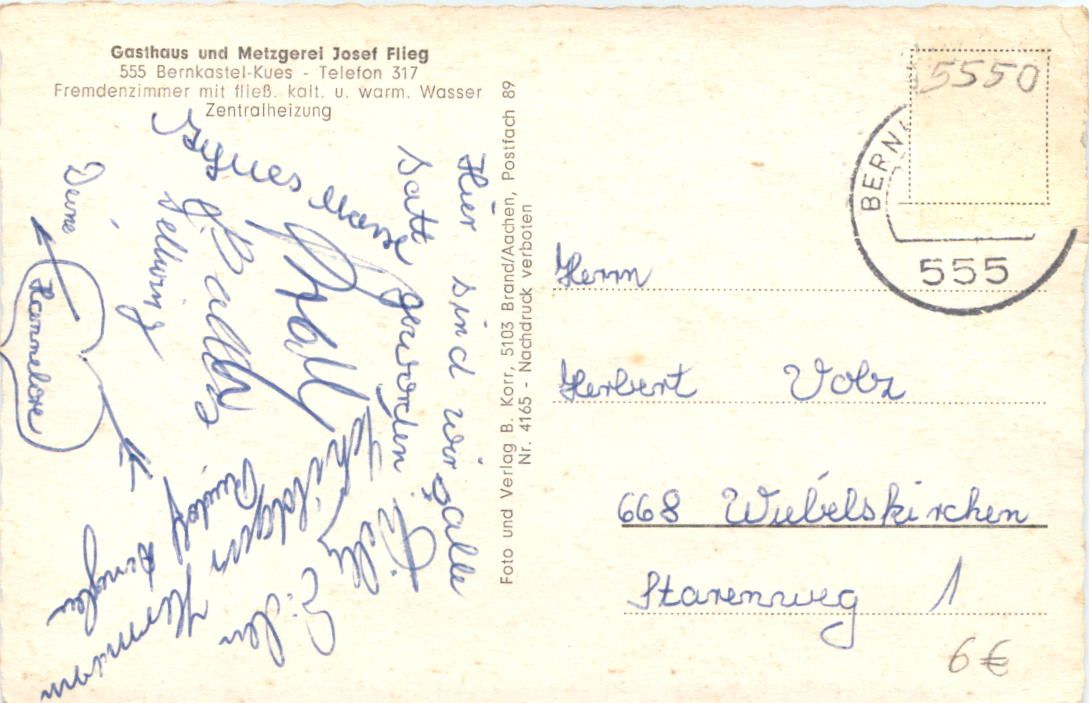 Gasthaus und Metzgerei Josef Flieg
555 Bernkastel-Kues - Telefon 317
Fremdenzimmer mit fließ. kalt. u. warm. Wasser
Zentralheizung
Hier sind wir alle
satt geworden
Agnes
Deine
Hannelore
Willi
Rudolf
Hermann
Foto und Verlag B. Korr, 5103 Brand/Aachen, Postfach 89
Nr. 4165 - Nachdruck verboten
5550
BERN
555
Herrn
Herbert Volz
668 Wiebelskirchen
Starenweg 1
6 €